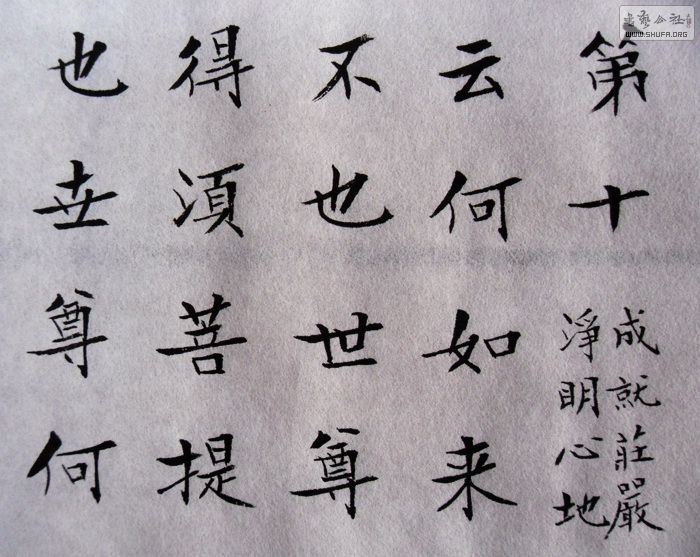 第十
成就莊嚴
淨眀心地
云何如来
不也世尊
得湏菩提
也卋尊何
書藝公社
WWW.SHUFA.ORG